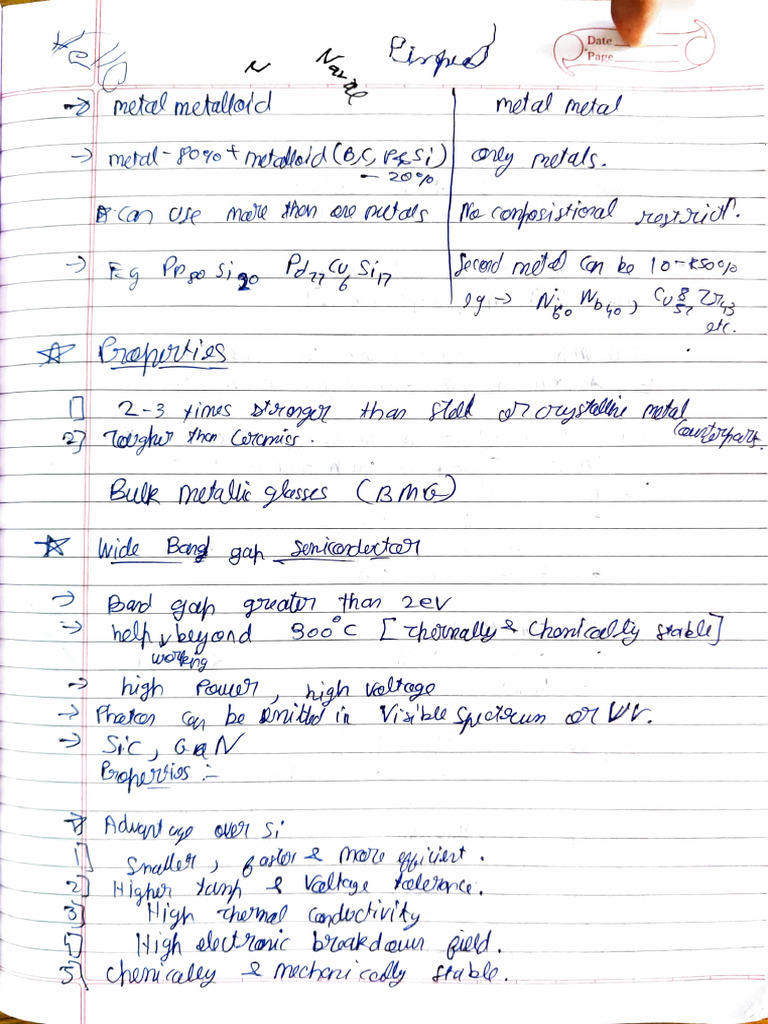 Hello
N Narae
Date
Page
→ metal metalloid | metal metal
→ metal-80% + metalloid (B,C,P&Si) - 20% | only metals.
can use more than one metals | No composistional restrict.
→ Eg Pp80 Si20 Pd77 Cu6 Si17 | Second metal can be 10-50%
eg → Ni60 Nb40, Cu57 Zr43 etc.
☆ Properties
1] 2-3 times stronger than steel or crystalline metal counterpart.
2] Tougher than ceramics.
Bulk metallic glasses (BMG)
☆ Wide Band gap semiconductor
→ Band gap greater than 2eV
→ help working beyond 300°C [Thermally & Chemically stable]
→ high Power, high voltage
→ Photon can be Emitted in Visible Spectrum or UV.
→ SiC, GaN
Properties :-
→ Advantage over Si
1] Smaller, faster & more efficient.
2] Higher temp & Voltage tolerance.
3] High thermal conductivity
5] High electronic breakdown field.
5] Chemicaley & mechanically stable.